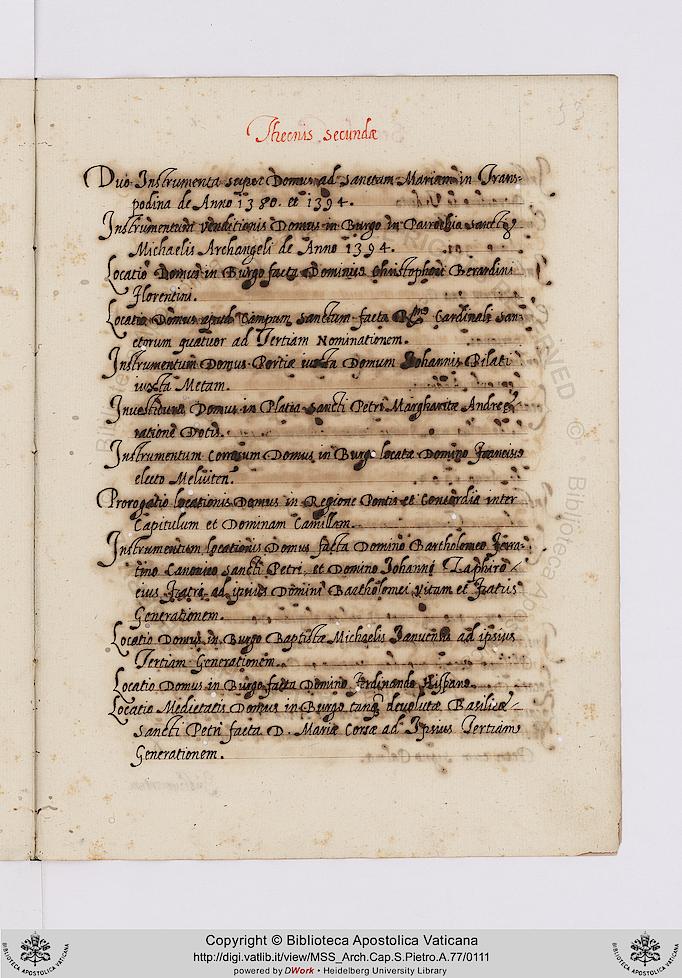 Thecnis secundæ
Duo Instrumenta super Domus ad Sanctum Mariam in Trans-
podina de Anno 1380. et 1394.
Instrumentum venditionis Domus in Burgo in Parrochia Sanctę
Michaelis Archangeli de Anno 1394.
Locatio Domus in Burgo facta Dominus Christophori Berardini
Florentini.
Locatio Domus apud Campum Sanctum facta Rmo Cardinali San-
ctorum quatuor ad Tertiam Nominationem.
Instrumentum Domus Portiæ iuxta Domum Iohannis Pilati
iuxta Metam.
Investitura Domus in Platia Sancti Petri Margharitæ Andreę
ratione Dotis.
Instrumentum Domus in Burgo locatæ Domino Francisco
electo
Prorogatio locationis Domus in Regione Pontis et Concordia inter
Capitulum et Dominam Camillam.
Instrumentum locationis Domus facta Domino Bartholomeo Ferra-
tino Canonico Sancti Petri, et Domino Iohanni Zaphiro
eius Fratri ad ipsius Domini Bartholomei vitam et Fratris
Generationem.
Locatio Domus in Burgo Baptistæ Michaelis Ianuensi ad ipsius
Tertiam Generationem.
Locatio Domus in Burgo facta Domino Ferdinando Hispano.
Locatio Medietatis Domus in Burgo tanq devolutæ Basilicæ
Sancti Petri facta D. Mariæ Corsæ ad Ipsius Tertiam
Generationem.
Copyright © Biblioteca Apostolica Vaticana
http://digi.vatlib.it/view/MSS_Arch.Cap.S.Pietro.A.77/0111
powered by DWork • Heidelberg University Library